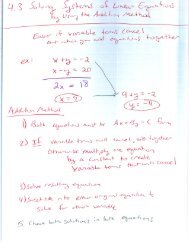 4.3 Solving Systems of Linear Equations
by Using the Addition Method
variable terms cancel
when you add equations together
ex: x+y=-2
x-y=20
2x = 18
x=9
9+y=-2
y=-11
Addition Method
1) Both equations must be Ax+By=C form
2) If variable terms will cancel, add together
Otherwise multiply one equation
by a constant to create
variable terms that will cancel
3) Solve resulting equation
4) Substitute into either original equation to
solve for other variable
5. Check both solutions in both equations